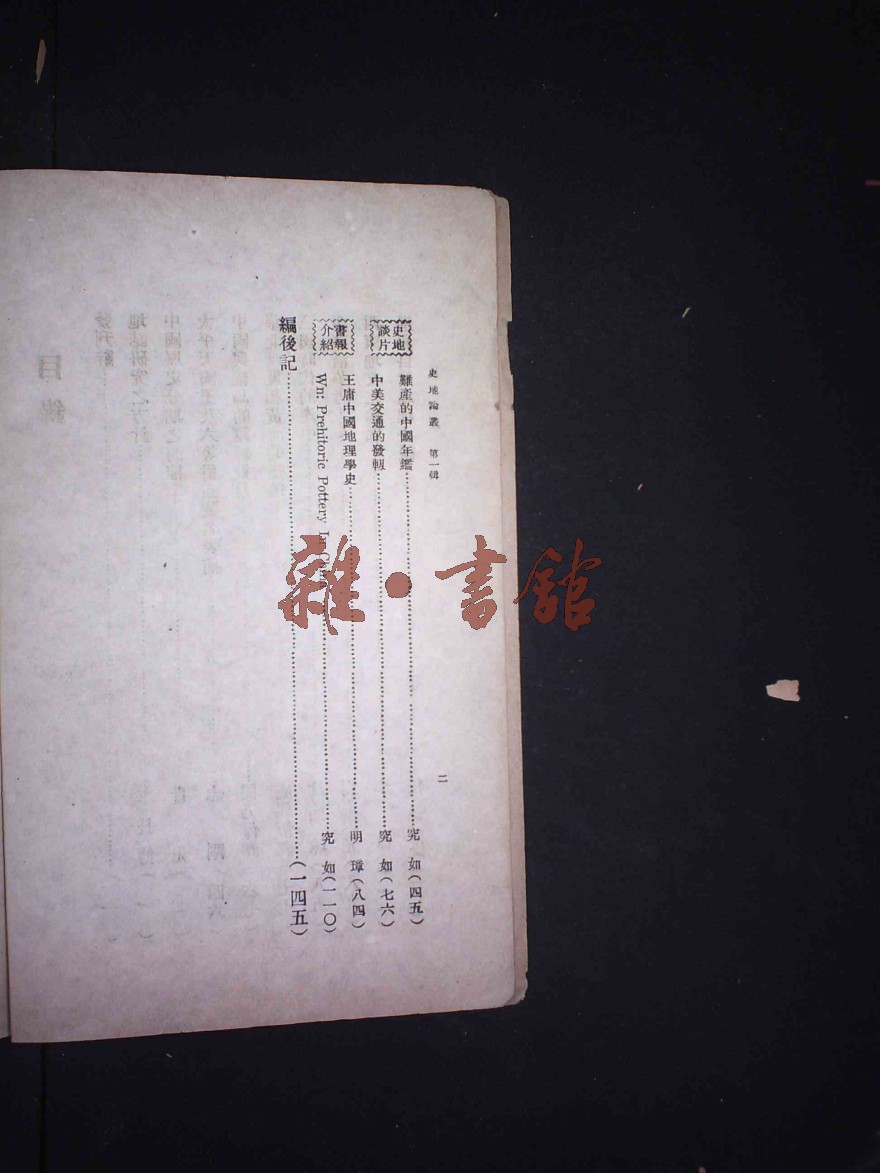 史地論叢 第一輯
二
史地談片
難產的中國年鑑 究如(四五)
中美交通的發軔 究如(七六)
書報介紹
王庸中國地理學史 明璋(八四)
Wn: Prehitoric Pottery In 究如(一一〇)
編後記 (一四五)
目錄
雜·書館